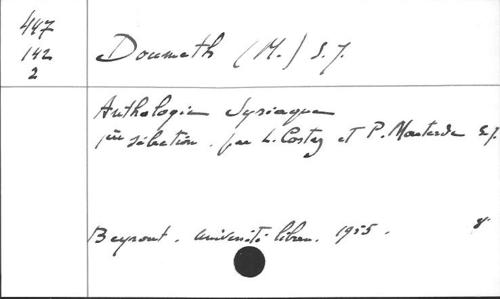 447
142
2
Doumeth (M.) S.J.
Anthologie Syriaque
1ère sélection. par L. Costaz et P. Mouterde S.J.
Beyrout. université liban. 1955. 8°